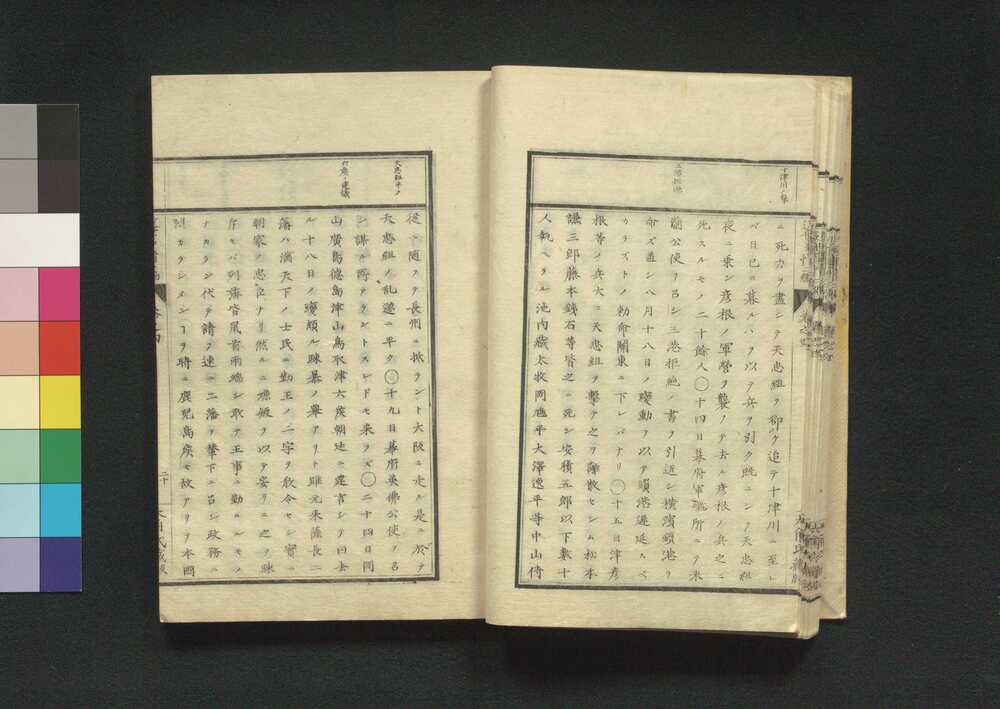 十津川ノ擧
三港拒絶
ニ死力ヲ盡シテ天忠組ヲ仰ク追テ十津川ニ至レ
バ日已ニ暮ルハヲ以テ兵ヲ引ク既ニシテ天忠組
夜ニ乗シ彦根ノ軍營ヲ襲ノテ去ル彦根ノ兵之ニ
死スルモノ二十餘人〇十四日幕府軍艦所ニ各米
蘭公使ヲ呂シ三港拒絶ノ書ヲ引返シ横濱鎖港ノ
命ズ蓋シ八月十八日ノ變動ヲ以テ鎖港遅延スベ
カラズトノ勅命關東ニ下レバナリ〇十五日津彦
根等ノ兵大ニ天忠組ヲ撃テ之ヲ離散セシム松本
謙三郎藤本銕石等皆之ニ死シ安積五郎以下數十
人執ヘラル池内蔵太牧岡鳩平大澤逸平等中山侍
大忠組平ク
六廣ノ建議
從ニ随ヌテ長州ニ抵ラント大阪ニ走ル是ニ於テ
天忠組ノ乱遂ニ平ク〇十九日幕府英佛公使ヲ呂
シ謀ル所アラントスレドモ来ラズ〇二十四日岡
山廣島德島津山鳥取津六侯朝廷ニ建言シテ曰去
ル十八日ノ變頗ル踈暴ノ擧アリト雖元来薩長二
藩ハ満天下ノ士民ニ勤王ノ二字ヲ教令セシ實ニ
朝家ノ忠臣ナリ然ルニ嫌疑ヲ以テ妄リニ之ヲ踈
斥セバ列藩皆風首両端シ取テ王事ニ勤ルモノ
ナカラン伏テ請フ速ニ二藩ヲ輦下ニ呂シ政務ニ
カラシメンヿヲ時ニ鹿兒島侯モ故アリヲ本國
二十